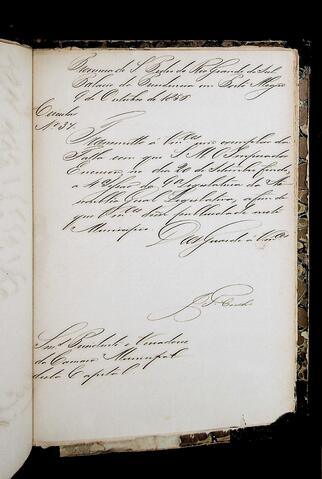 Provincia de S. Pedro do Rio Grande do Sul
Palacio da Presidencia em Porto Alegre
9 de Outubro de 1855
Circular
Nº 37.
Transmitto á Vmces exemplar da
Falla com que S. M. O Imperador
Encerrou no dia 20 de Setembro findo,
a Sessão da 9ª Legislatura da As-
semblea Geral Legislativa, afim de
que Vmces fação publical-a neste
Municipio. Deos Guarde a Vmces
Snrs. Presidente e Vereadores
da Camara Municipal
desta Capital